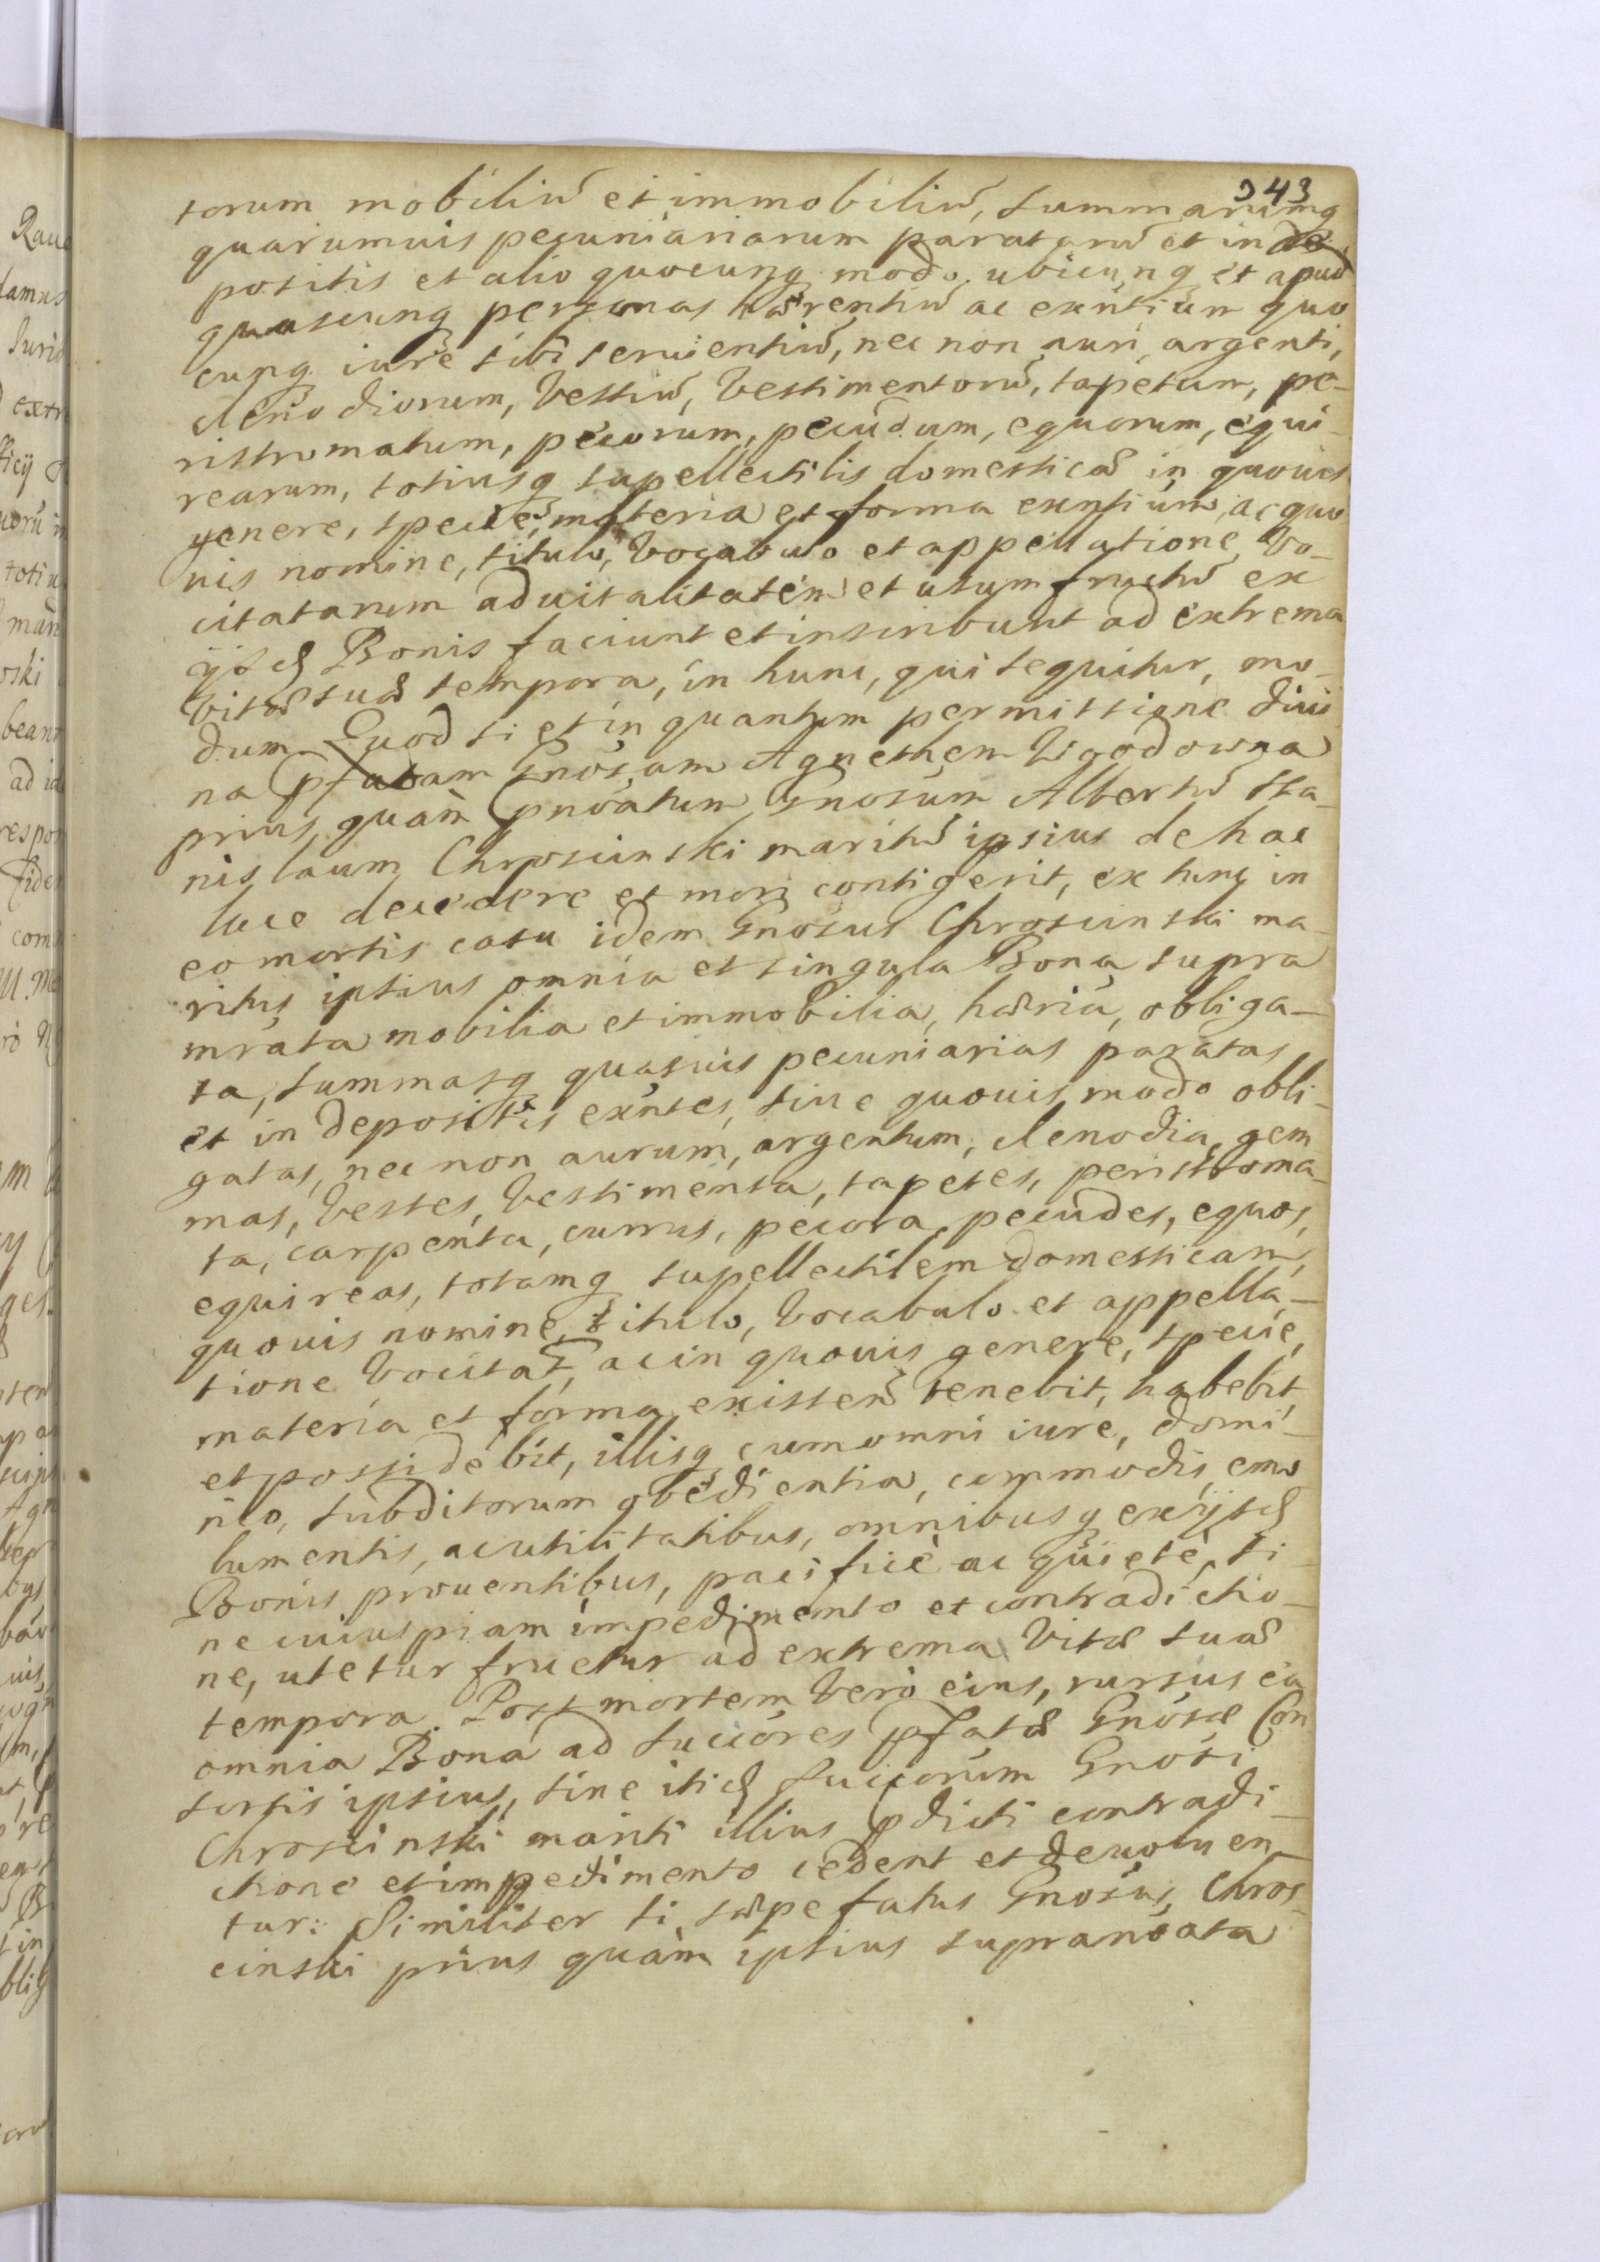 343
torum mobiliũ et immobiliũ, summarumq
quarumuis pecuniariarum paratarũ et in de
positis et alio quocunq modo, ubicunq et apud
quascunq personas hærentiũ ac exñtium quo
cunq iure sibi seruientiũ, nec non auri, argenti,
clenodiorum, Vestiũ, Vestimentorũ, tapetum, pe-
ristromatum, pecorum, pecudum, equorum, equi-
rearum, totiusq supellectilis domesticæ in quouis
genere, specie, materia et forma exñtium, ac quo
uis nomine, titulo, Vocabulo et appellatione Vo-
citatarum aduitalitatem et usumfructũ ex
ijsd Bonis faciunt et inscribunt ad extrema
Vitæ suæ tempora, in hunc, qui sequitur, mo-
dum. Quod si et in quantum permissione diui
na pfatam Gnosam Agnethem Wgodowna
prius, quàm pnoatum Gnosum Albertũ Sta-
nislaum Chroscinski maritũ ipsius de hac
luce decedere et mori contigerit, ex tunc in
eo mortis casu idem Gnosus Chroscinski ma-
ritus ipsius omnia et singula Bona supra
mrata mobilia et immobilia, hæria, obliga-
ta, summasq quasuis pecuniarias paratas
et in depositis exñtes, siue quouis modo obli-
gatas, nec non aurum, argentum, clenodia, gem
mas, Vestes, Vestimenta, tapetes, peristroma-
ta, carpenta, currus, pecora, pecudes, equos,
equireas, totamq supellectilem domesticam,
quouis nomine, titulo, Vocabulo et appella-
tione Vocitat, ac in quouis genere, specie,
materia et forma existen tenebit, habebit,
et possidebit, illisq cum omni iure, domi-
nio, subditorum obedientia, commodis, emo
lumentis, ac utilitatibus, omnibusq ex ijsd
Bonis prouentibus, pacificè ac quietè, si-
ne cuiuspiam impedimento et contradictio-
ne, utetur fruetur ad extrema Vitæ suæ
tempora. Post mortem Verò eius, rursus ea
omnia Bona ad succores pfatæ Gnosæ Con
sortis ipsius, sine itid succorum Gnosi
Chroscinski mariti illius pdicti contradi-
ctione et impedimento cedent et deuoluen
tur: Similiter si sæpefatus Gnosus Chros-
cinski prius quàm ipsius supranoata